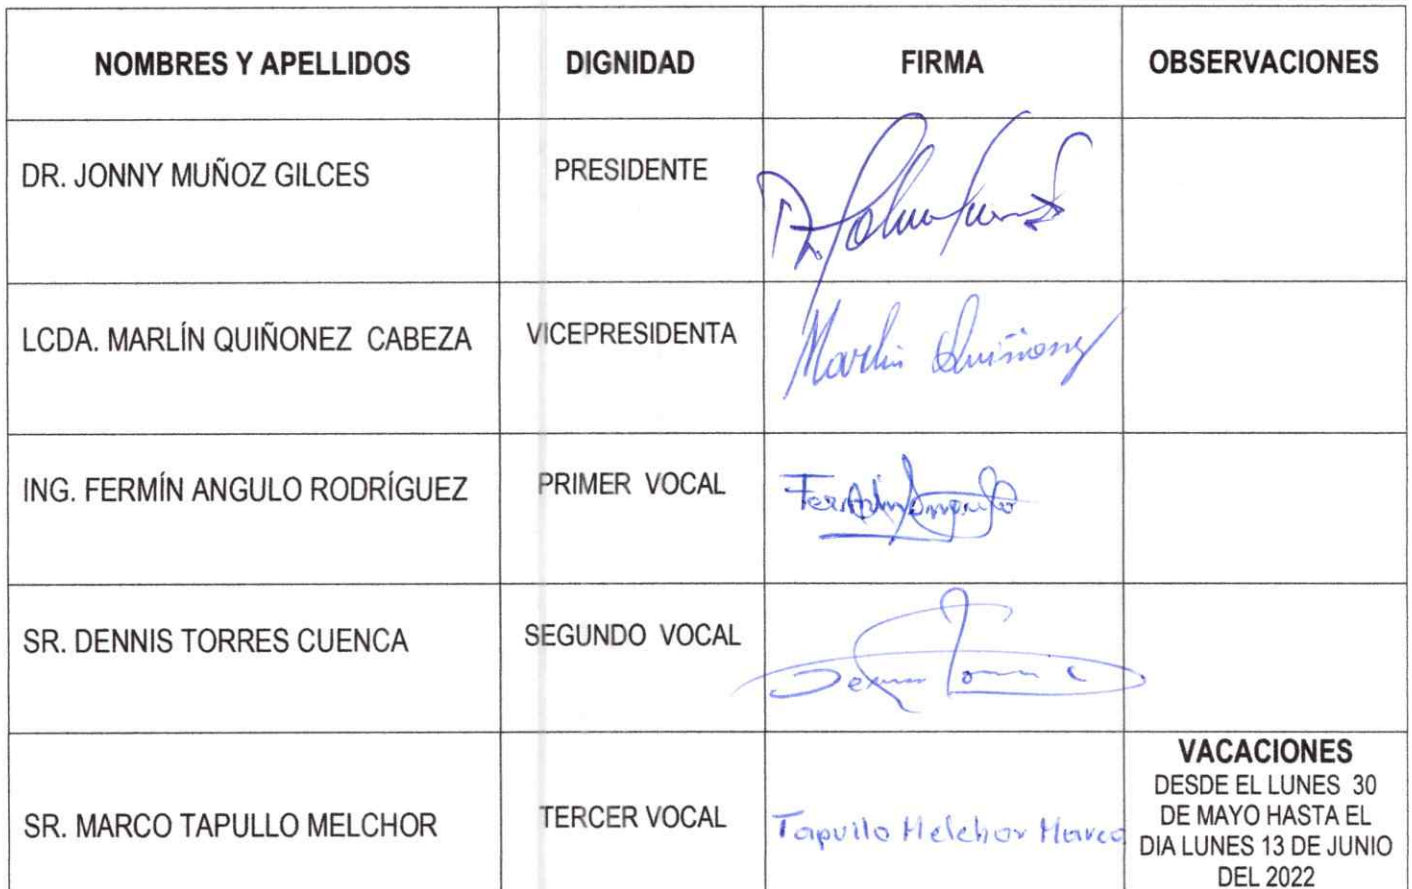 NOMBRES Y APELLIDOS DIGNIDAD FIRMA OBSERVACIONES
DR. JONNY MUÑOZ GILCES PRESIDENTE
LCDA. MARLÍN QUIÑONEZ CABEZA VICEPRESIDENTA Marlin Quiñonez
ING. FERMÍN ANGULO RODRÍGUEZ PRIMER VOCAL
SR. DENNIS TORRES CUENCA SEGUNDO VOCAL
SR. MARCO TAPULLO MELCHOR TERCER VOCAL Tapullo Melchor Marco
VACACIONES
DESDE EL LUNES 30
DE MAYO HASTA EL
DIA LUNES 13 DE JUNIO
DEL 2022